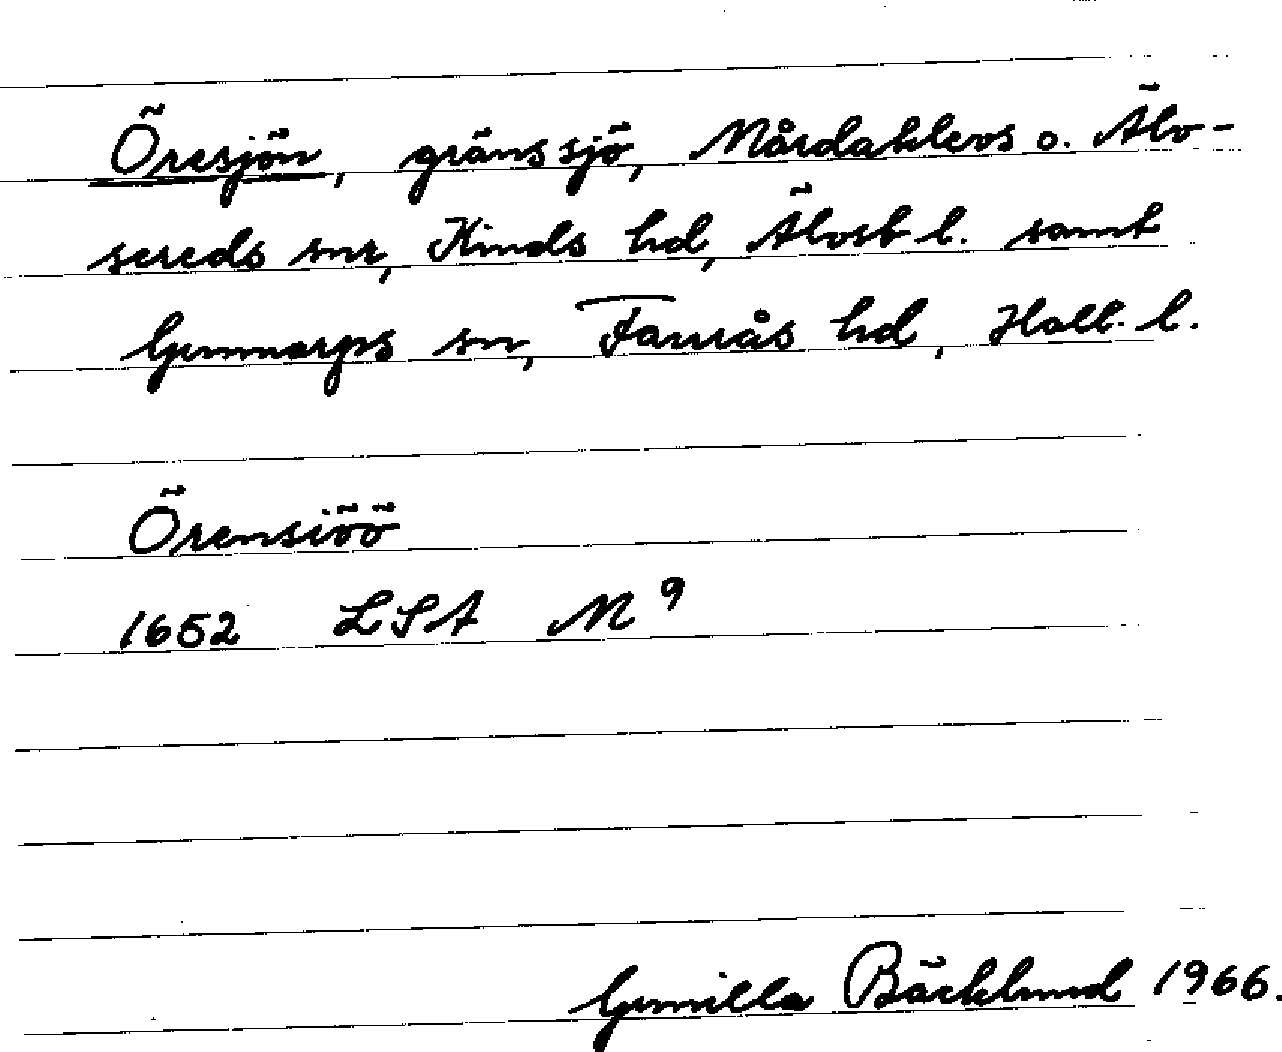 Öresjön, gränssjö, Mårdaklevs o. Älv-
sereds snr, Kinds hd, Älvsb l. samt
Gunnarps sn, Faurås hd, Hall. l.
Örensiöö
1652 LSA M 9
Gunilla Bäcklund 1966.